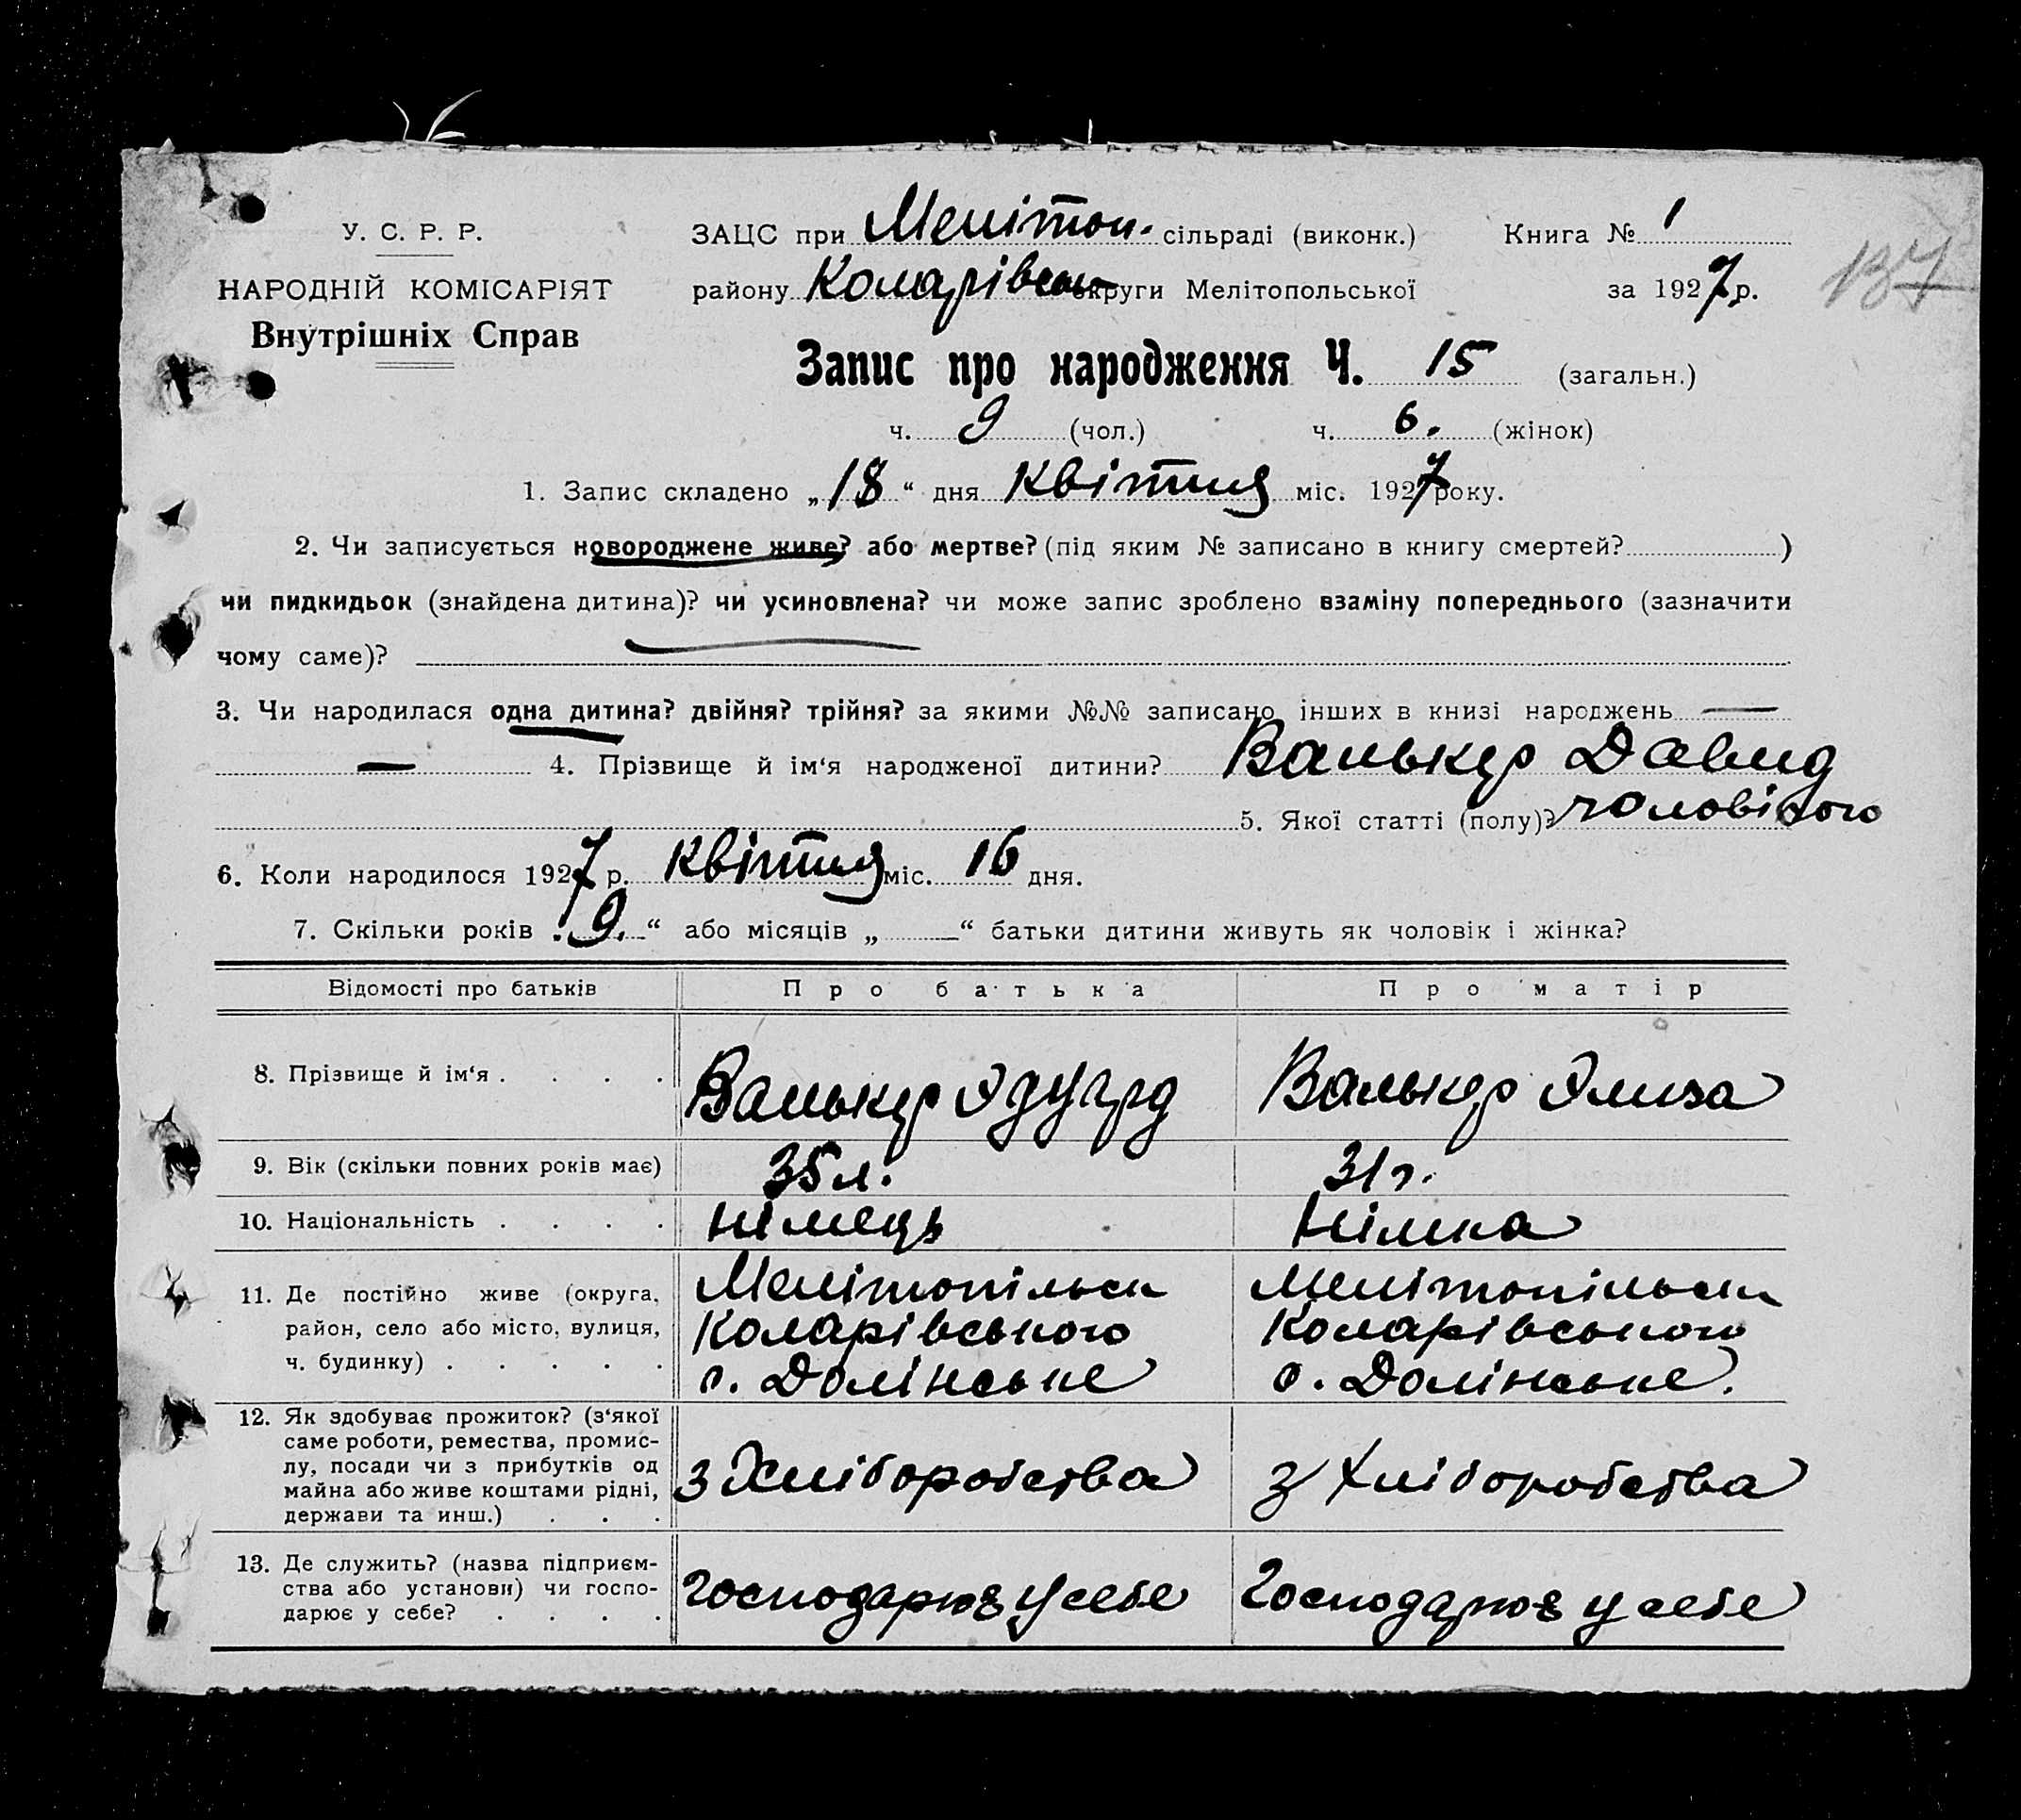 У. С. Р. Р.
НАРОДНІЙ КОМІСАРІЯТ
Внутрішніх Справ
ЗАЦС при Меліто​п. сільраді (виконк.) Книга № 1
району Коларівськ округи Мелітопольської за 1927 р.
137
Запис про народження Ч. 15 (загальн.)
ч. 9 (чол.) ч. 6. (жінок)
1. Запис складено „18“ дня квітня міс. 1927 року.
2. Чи записується новороджене живе? або мертве? (під яким № записано в книгу смертей? )
чи пидкидьок (знайдена дитина)? чи усиновлена? чи може запис зроблено взаміну попереднього (зазначити
чому саме)?
3. Чи народилася одна дитина? двійня? трійня? за якими №№ записано інших в книзі народжень —
— 4. Прізвище й ім‘я народженої дитини? Валькер Давид
5. Якої статті (полу)? чоловічого
6. Коли народилося 1927 р. квітня міс. 16 дня.
7. Скільки років „9.“ або місяців „ “ батьки дитини живуть як чоловік і жінка?
Відомості про батьків Про батька Про матір
8. Прізвище й ім‘я . . . . Валькер Эдуард Валькер Элиза
9. Вік (скільки повних років має) 35 л. 31 г.
10. Національність . . . . німець німка
11. Де постійно живе (округа, Мелітопільськ Мелітопільськ
район, село або місто, вулиця, Коларівського Коларівського
ч. будинку) . . . . . с. Долінське с. Долінське.
12. Як здобуває прожиток? (з‘якої
саме роботи, ремества, промис-
лу, посади чи з прибутків од з Хліборобства з Хліборобства
майна або живе коштами рідні,
держави та инш.) . . .
13. Де служить? (назва підприєм-
ства або установи) чи госпо- господарює у себе господарює у себе
дарює у себе? . . . .